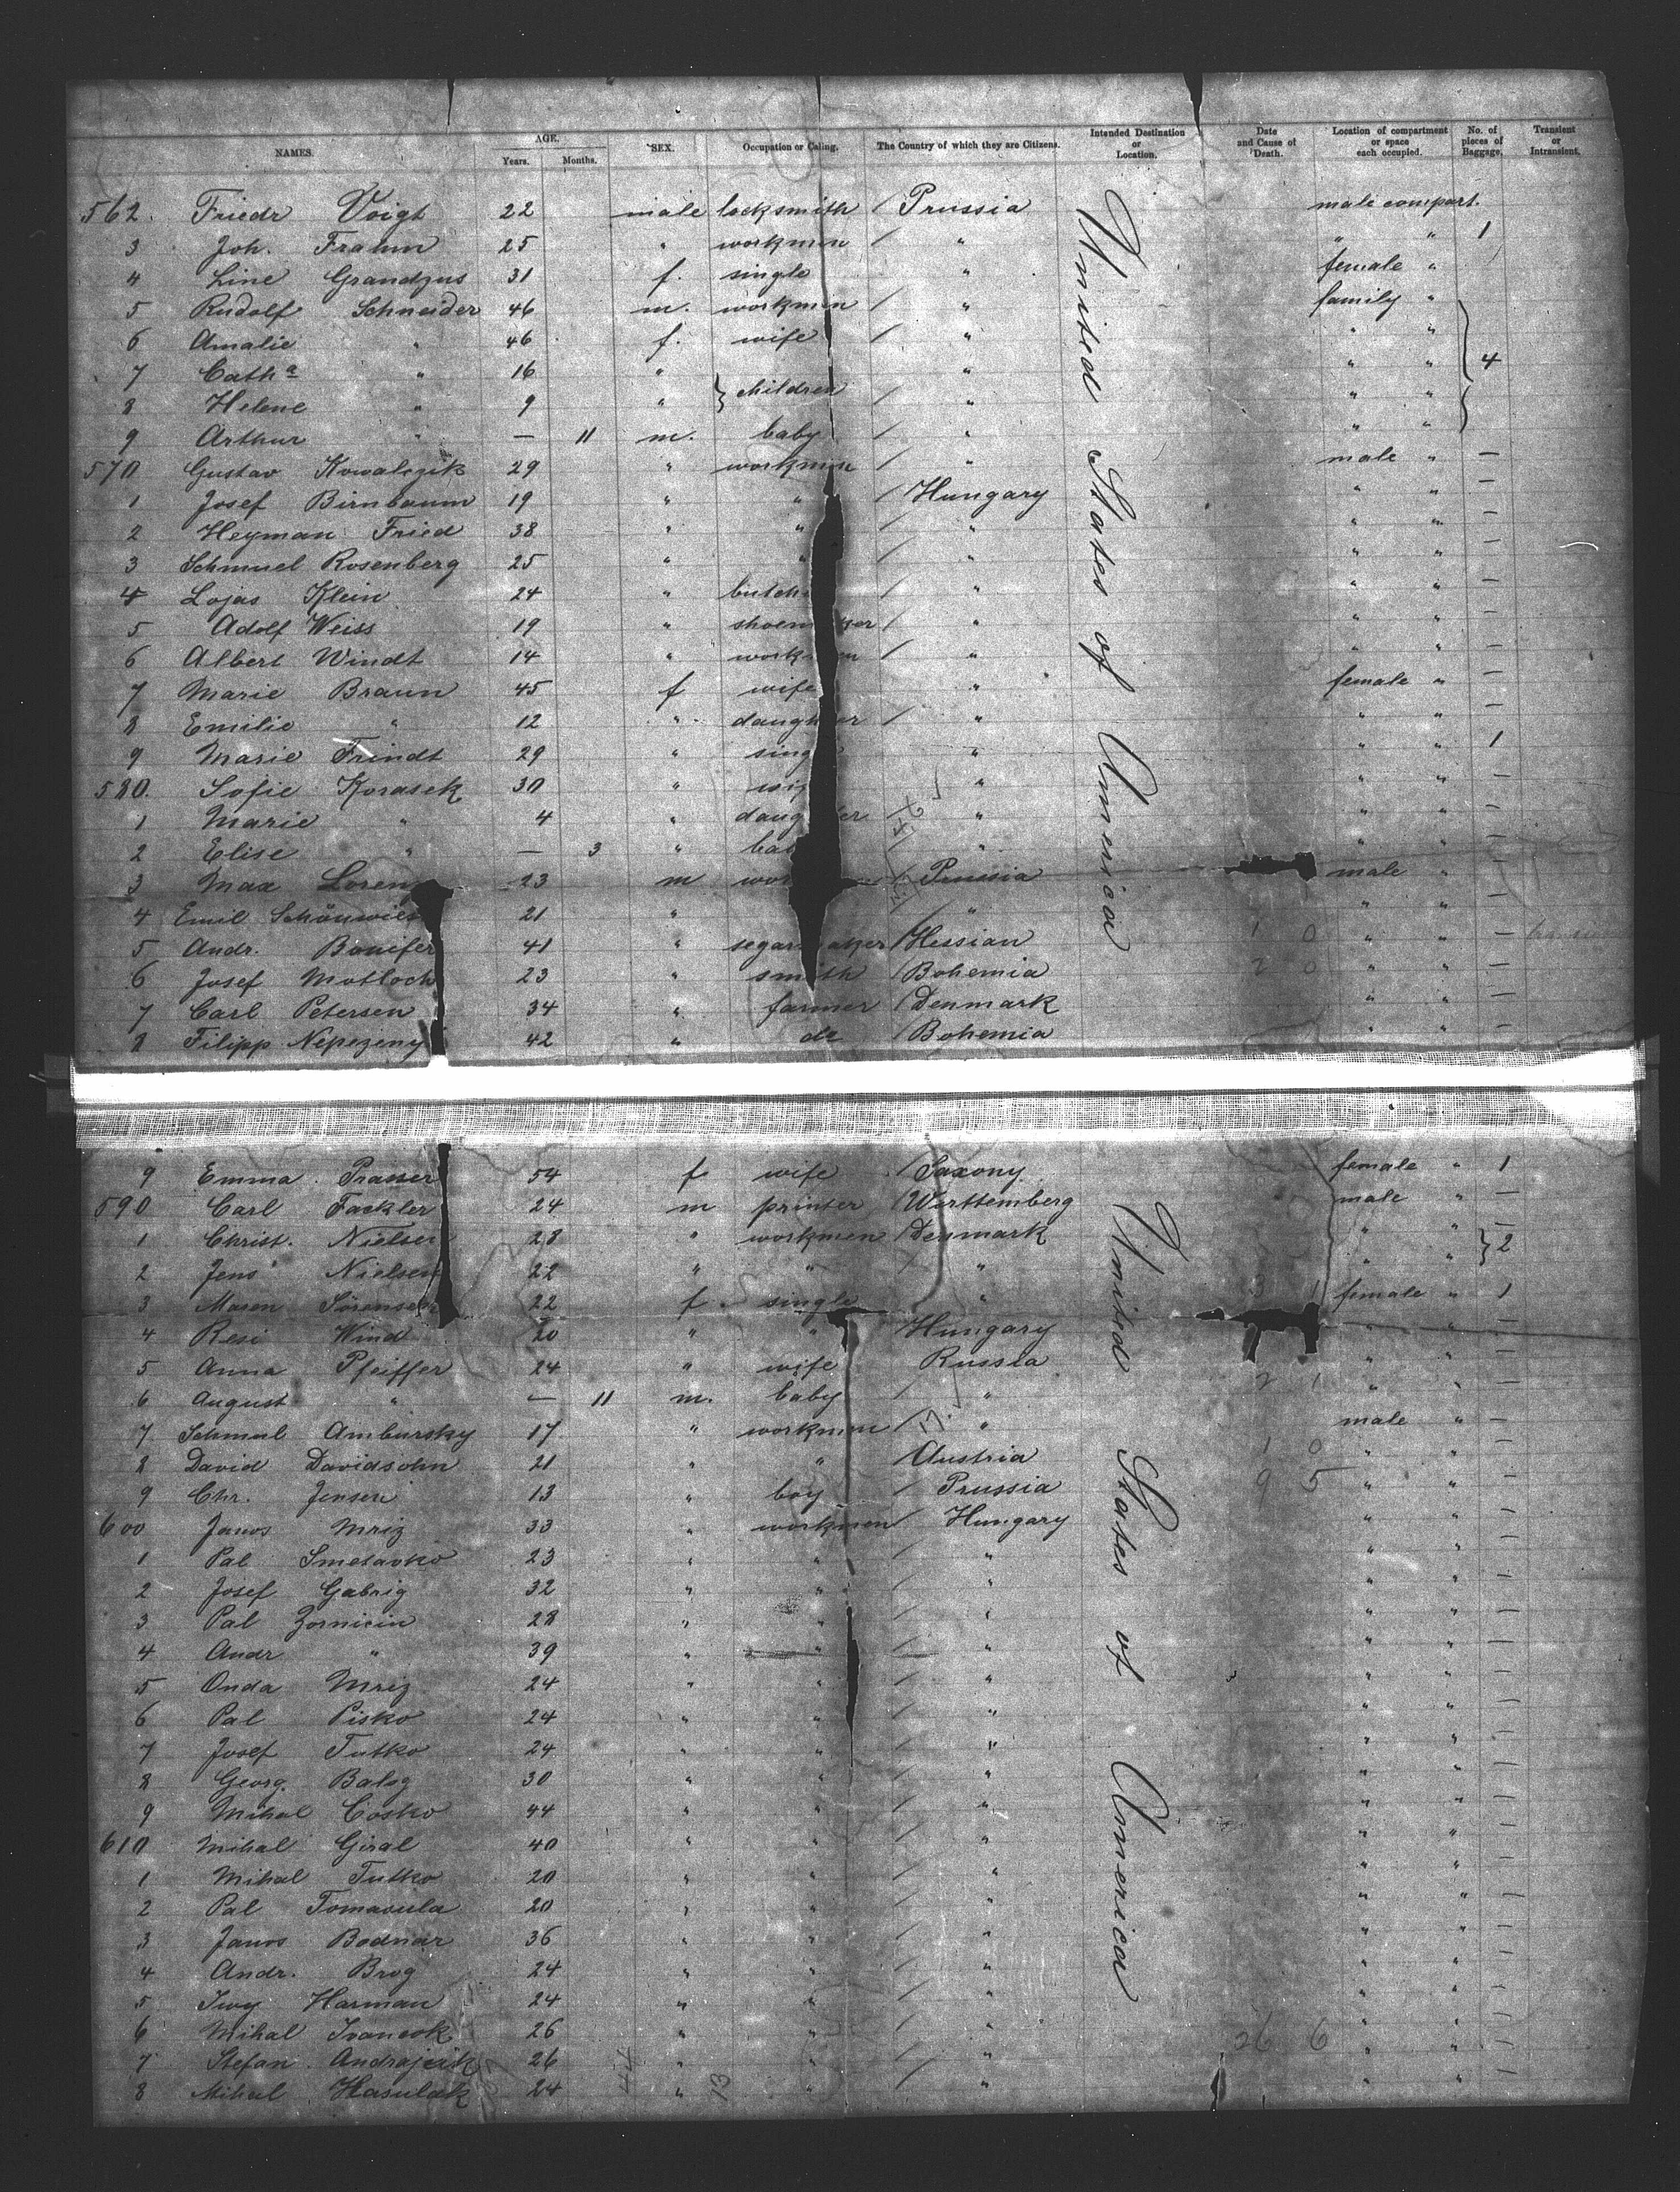 NAMES. AGE. Years. Months. SEX. Occupation or Caling. The Country of which they are Citizens. Intended Destination or Location. Date and Cause of Death. Location of compartment or space each occupied. No. of pieces of Baggage. Transient or Intransient.
United States of America
562. Friedr Voigt 22 male locksmith / Prussia male compart.
3 Joh. Frahm 25 " workmen / " " " 1
4 Line Grandzus 31 f. single " female "
5 Rudolf Schneider 46 m. workmen / " family "
6 Amalie " 46 f. wife / " " "
7 Catha " 16 " } children " " " } 4
8 Helene " 9 " / " " "
9 Arthur " — 11 m. baby / " " "
570 Gustav Kowalczik 29 " workmen / " male " —
1 Josef Birnbaum 19 " " / Hungary " " —
2 Heyman Fried 38 " " / " " " —
3 Schmuel Rosenberg 25 " " / " " " —
4 Lojas Klein 24 " butch / " " " —
5 Adolf Weiss 19 " shoem ker / " " " —
6 Albert Windt 14 " work n / " " " —
7 Marie Braun 45 f wife " female " —
8 Emilie " 12 " daugh er / " " " —
9 Marie Frindt 29 " sing " " " 1
580. Sofie Korasek 30 " wif " " " —
1 Marie " 4 " daug er / " " " —
2 Elise " — 3 " ba " " " —
3 Max Loren 23 m wor / Prussia male " —
4 Emil Schönwies 21 " / " " " —
5 Andr. Bonifer 41 " segar aker / Hessian " " —
6 Josef Motloch 23 " smith / Bohemia " " —
7 Carl Petersen 34 " farmer / Denmark " " —
8 Filipp Nepezeny 42 " do / Bohemia " "
United States of America
9 Emma Prasser 54 f wife / Saxony female " 1
590 Carl Fackler 24 m printer / Württemberg male " —
1 Christ. Nielsen 28 " workmen / Denmark " " } 2
2 Jens Nielsen 22 " " / " " "
3 Maren Sörensen 22 f. single " female " 1
4 Resi Wind 20 " " Hungary " " —
5 Anna Pfeiffer 24 " wife Russia " " —
6 August " — 11 m. baby / " " " —
7 Schmul Ambursky 17 " workmen / " male " —
8 David Davidsohn 21 " " / Austria " " —
9 Chr. Jensen 13 " boy / Prussia " " —
600 Janos Mriz 33 " workmen / Hungary " " —
1 Pal Smetavko 23 " " / " " " —
2 Josef Gabrig 32 " " / " " " —
3 Pal Zornicin 28 " " / " " " —
4 Andr " 39 " " / " " " —
5 Onda Mriz 24 " " / " " " —
6 Pal Pisko 24 " " / " " " —
7 Josef Tutko 24 " " / " " " —
8 Georg Balog 30 " " / " " " —
9 Mihal Cosko 44 " " / " " " —
610 Mihal Giral 40 " " / " " " —
1 Mihal Tutko 20 " " / " " " —
2 Pal Tomasula 20 " " / " " " —
3 Janos Bodnar 36 " " / " " " —
4 Andr. Brog 24 " " / " " " —
5 Iwy Harman 24 " " / " " " —
6 Mihal Ivancok 26 " " / " " " —
7 Stefan Andrajcik 26 " " / " " " —
8 Mihal Hasulak 24 " " / " " " —